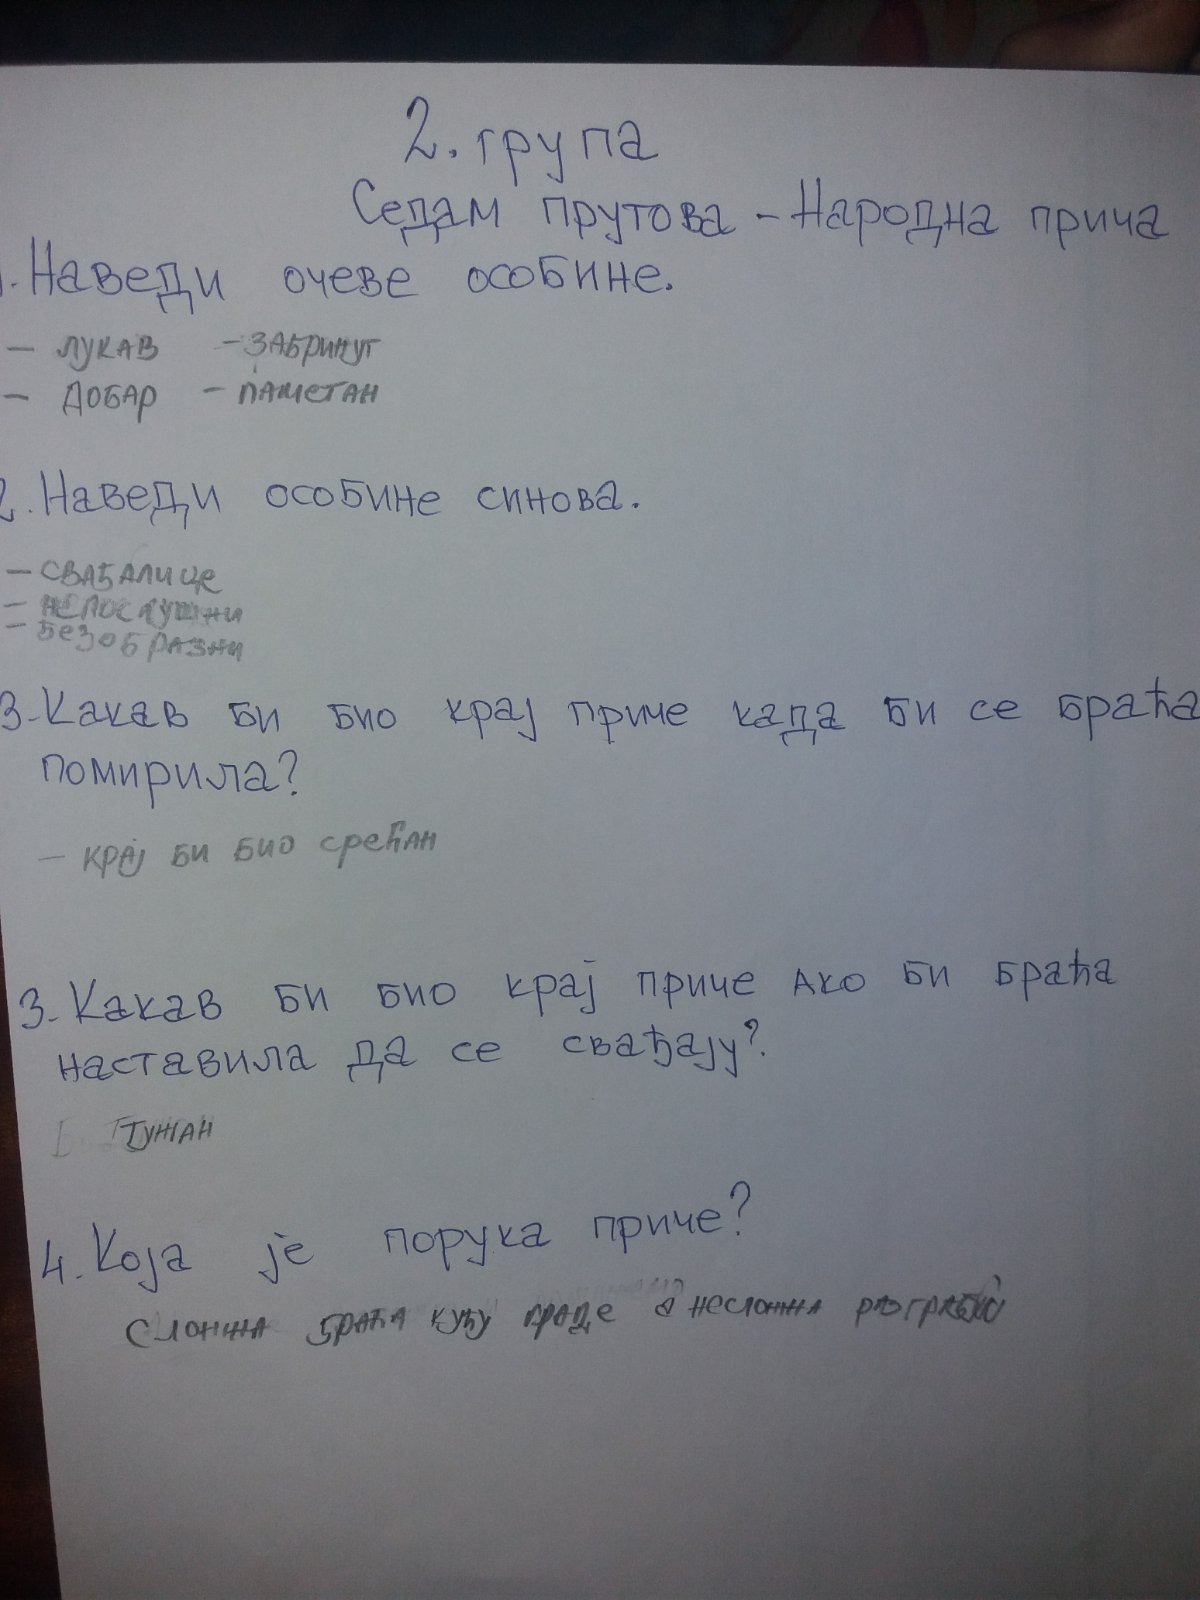 2. група
Седам прутова - Народна прича
1. Наведи очеве особине.
- ЛУКАВ - ЗАБРИНУТ
- ДОБАР - ПАМЕТАН
2. Наведи особине синова.
- СВАЂАЛИЦЕ
- НЕПОСЛУШНИ
- БЕЗОБРАЗНИ
3. Какав би био крај приче када би се браћа
помирила?
- КРАЈ БИ БИО СРЕЋАН
3. Какав би био крај приче ако би браћа
наставила да се свађају?
ТУЖАН
4. Која је порука приче?
СЛОЖНА БРАЋА КУЋУ ГРАДЕ а НЕСЛОЖНА